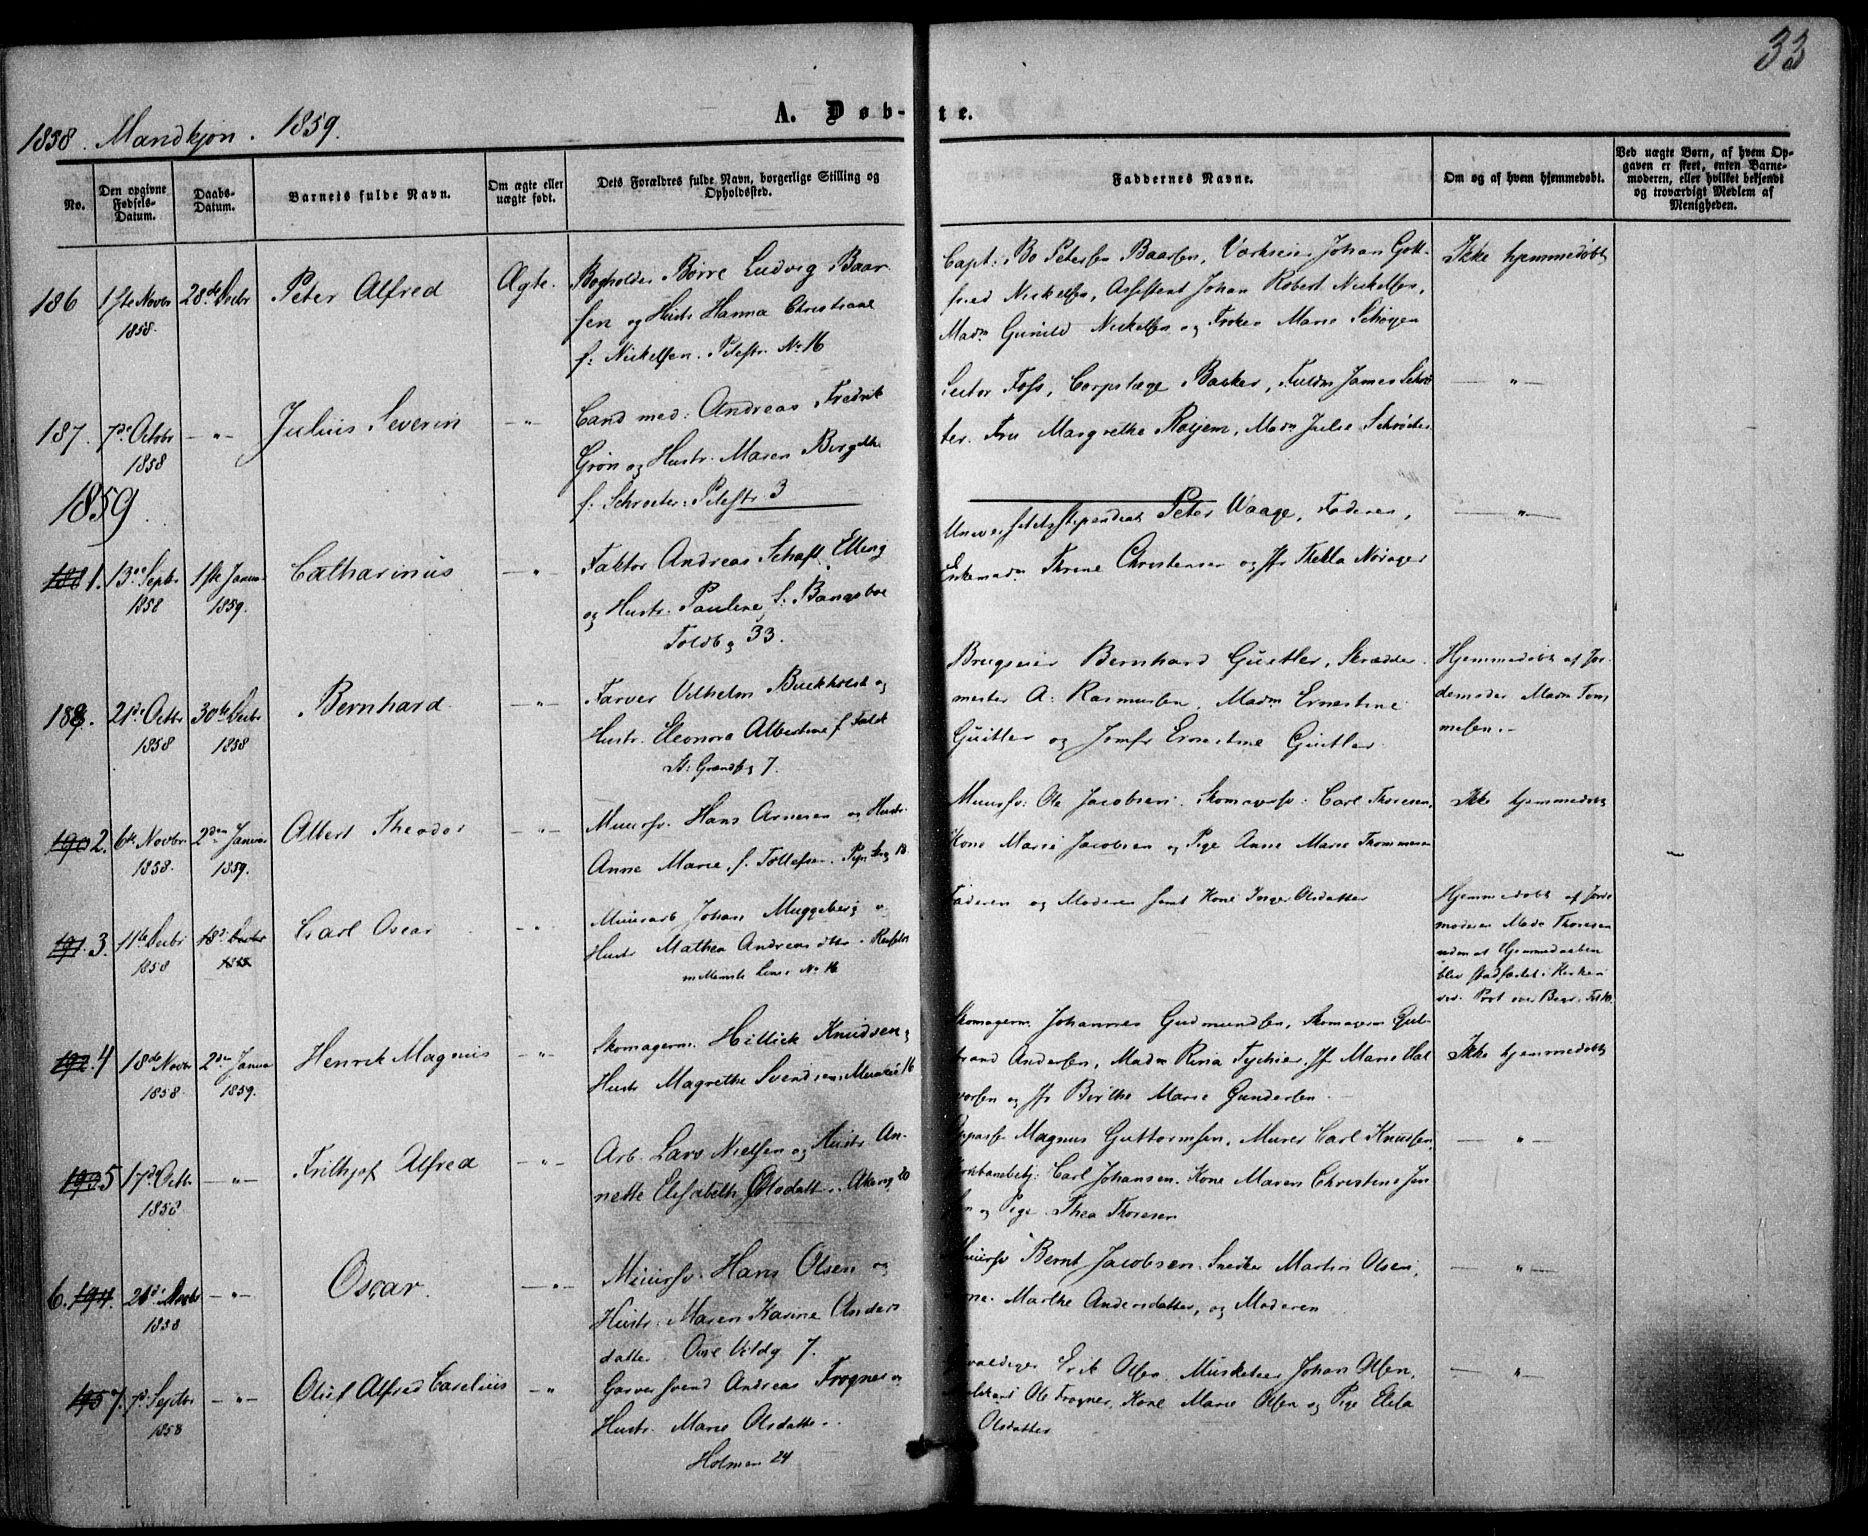 33
1858. Mandkjøn. 1859.
A. Døb-te.
No.
Den opgivne Fødsels-Datum.
Daabs-Datum.
Barnets fulde Navn.
Om ægte eller uægte født.
Dets Forældres fulde Navn, borgerlige Stilling og Opholdssted.
Faddernes Navne.
Om og af hvem hjemmedøbt.
Ved uægte Børn, af hvem Opgaven er skeet, enten Barnemoderen, eller hvilket bekjendt og troværdigt Medlem af Menigheden.
186 1ste Novbr 1858. 28de Decbr Peter Alfred Ægte.
Bogholder Børre Ludvig Baar-
sen og Hustr. Hanna Christiane
f: Nickelsen. Pilestr. No 16
Capt: Bo Petersen Baarsen, Værkseier Johan Gott-
fried Nickelsen, Assistent Johan Robert Nickelsen,
Madm Gunild Nickelsen og Frøken Marie
Ikke hjemmedøbt
187. 7de Octbr 1858 —"— Julius Severin —"—
Cand med: Andreas Fredrik
Grøn og Hustr. Maren Bergithe
f. Schroeter. Pilestr. 3
Foss, Corpslæge Backer, James Schrø-
ter. Fru Margrethe Madm Julie Schrøter
—"—
1859.
188 1. 13de Septbr 1858 1ste Januar 1859. Catharinus —"—
Faktor Andreas Schaft Elling
og Hustr. Pauline f: Bangsboe
Toldbg 33.
Universitetsstipendiat Peter Waage, Faderen,
Enkemadm Thrine Christensen og Jfr Thekla Nørager
—"—
189. 21de Octbr 1858 30te Decbr 1858 Bernhard —"—
Farver Vilhelm Buckholdt og
Hustr. Eleonora Albertine f. Falck
St: Grændsg 7.
Brugseier Bernhard Guttler, Skrædder-
mester A: Rasmussen, Madm Ernestine
Guttler og Jomfr Ernestine Guttler
Hjemmedøbt af Jor-
demoder Madm Tom-
mesen.
190 2. 6te Novbr 1858. 2den Januar 1859. Albert Theodor —"—
Muursv. Hans Arnesen og Hustr.
Anne Marie f. Tollefsen. 18
Muursv: Ole Jacobsen. Skomagersv: Carl Thoresen,
Kone Marie Jacobsen og Pige Anne Marie Thommesen
Ikke hjemmedøbt
191. 3. 11te Decbr 1858 18de Decbr 1858 Carl Oscar —"—
Muurarb Johan Muggeberg og
Hustr Mathea Andreasdtter.
No 16
Faderen og Moderen samt Kone Inger Olsdatter
Hjemmedøbt af Jorde-
moder Mad. Thoresen
uden at Hjemmedaaben
blev stadfæstet i Kirken
192. 4 18de Novbr 1858. 2den Januar 1859. Henrik Magnus —"—
Skomagerm. Hillick Knudsen og
Hustr Magrethe Svendsen. 16
Skomagerm. Johannes Gudmundsen, Skomagerm Gul-
brand Andersen, Madm Rina Tychier, Jfr Marie Hal-
vorsen og Jfr Birthe Marie Gundersen
Ikke hjemmedøbt
193. 5 17de Octbr 1858 —"— Frithjof Alfred —"—
Arb. Lars Nielsen og Hustr. An-
nette Elisabeth Olsdatt. Akersg 20
Magnus Guttormsen, Murer Carl Knudsen,
Carl Johansen. Kone Maren Christine Jen-
sen og Pige Thea Thoresen
—"—
6. 194. 21de Novbr 1858 —"— Oscar. —"—
Muursv. Hans Olsen og
Hustr. Maren Karine Anders-
datter. Øvre Voldg 7.
Muursv Bernt Jacobsen. Snedker Martin Olsen,
Kone. Marthe Andersdatter, og Moderen
—"—
195 7. 7de Septbr 1858 —"— Oluf Alfred Carelius —"—
Garversvend Andreas Frogner og
Hustr. Marie Olsdatter.
Holmen 24
Erik Olsen, Musketeer Johan Olsen,
Ole Frogner, Kone Marie Olsen og Pige Elisa
Olsdatter
—"—